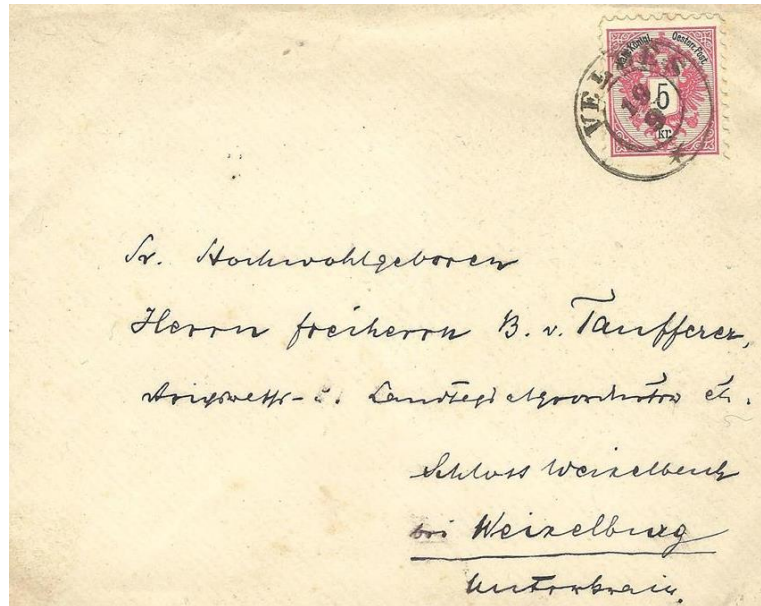 Kais. Königl. Oesterr. Post.
5
kr.
VELDES
19
9
Sr. Hochwohlgeboren
Herrn Freiherrn B. v. Taufferer,
Reichsraths- u. Landtags Abgeordneter etc.
Schloss Weixelbach
bei Weixelburg
Unterkrain.